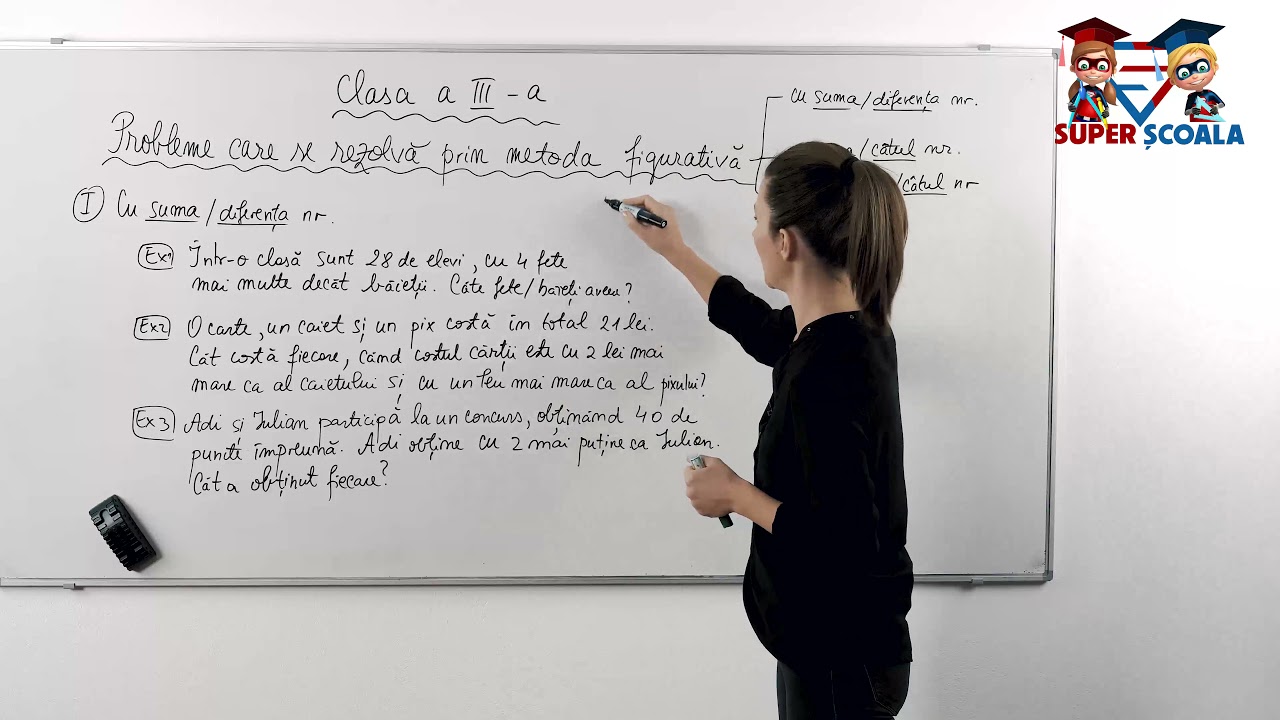 Clasa a III-a
Probleme care se rezolvă prin metoda figurativă
cu suma/diferența nr.
/câtul nr.
/câtul nr
I Cu suma/diferența nr.
Ex1 Într-o clasă sunt 28 de elevi, cu 4 fete
mai multe decât băieții. Câte fete/băieți avem?
Ex2 O carte, un caiet și un pix costă în total 21 lei.
Cât costă fiecare, când costul cărții este cu 2 lei mai
mare ca al caietului și cu un leu mai mare ca al pixului?
Ex3 Adi și Iulian participă la un concurs, obținând 40 de
puncte împreună. Adi obține cu 2 mai puține ca Iulian.
Cât a obținut fiecare?
SUPER ȘCOALA